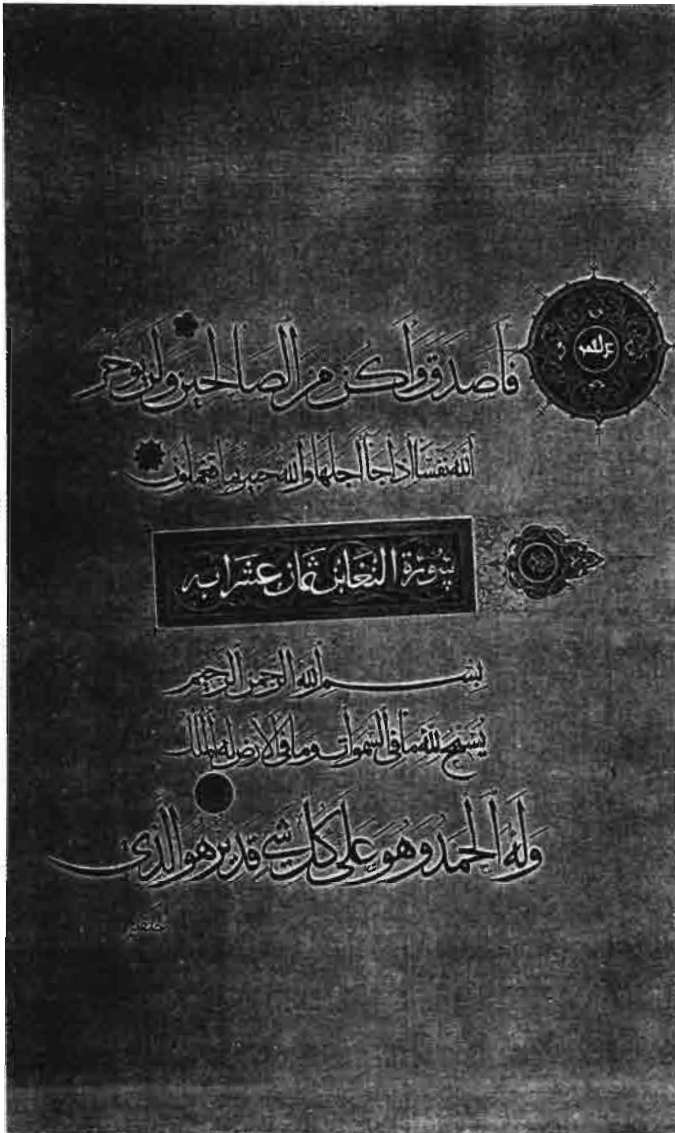 فَأَصَّدَّقَ وَأَكُنْ مِنَ الصَّالِحِينَ وَلَنْ يُؤَخِّرَ
اللَّهُ نَفْسًا إِذَا جَآءَ أَجَلُهَا وَاللَّهُ خَبِيرٌ بِمَا تَعْمَلُونَ
سُورَةُ التغابن ثمان عشر ايه
بِسْمِ اللَّهِ الرَّحْمَنِ الرَّحِيمِ
يُسَبِّحُ لِلَّهِ مَا فِي السَّمَوَاتِ وَمَا فِي الْأَرْضِ لَهُ الْمُلْكُ
وَلَهُ الْحَمْدُ وَهُوَ عَلَى كُلِّ شَيْءٍ قَدِيرٌ هُوَ الَّذِي
خلقكم